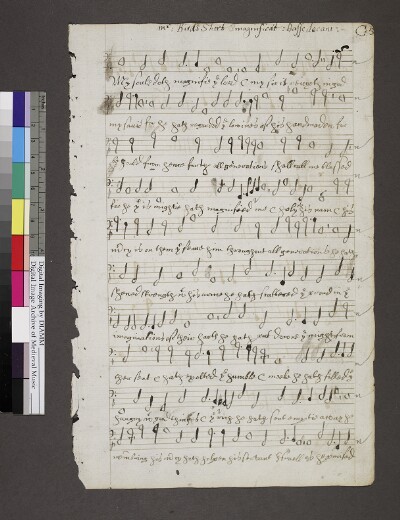 mr Birds Short magnificat Basse decani
My soule doth magnifie ye lord & my spirit
my savior for he hath regarded ye lowlines of his handmaiden for
from henceforth all generations shall call me blessed
for he yt is mightie hath magnified me & holy is his name & his
mercy is on them yt feare him throughout all generations he hath
shewed strength wth his arme he hath scattered ye proud in ye
imaginations of their harts he hath put downe ye mightie from
their seat & hath exalted ye humble & meeke he hath filled ye
hungry wth good things & ye rich he hath sent emptie away he
his mercy hath holpen his servant Israell as he promised
Digital Imaging by DIAMM
Digital Image Archive of Medieval Music